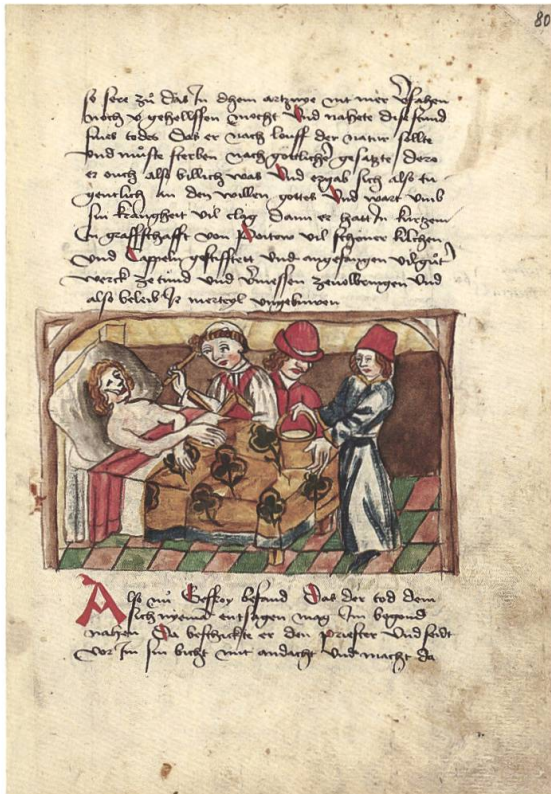 80
so sere zů das In dhein artznye nit mer v̊sahen
noch v̊ gehelffen mocht Und nahete die stund
sines todes das er nach louff der natur solte
vnd můste sterben nach gottlicher gesatzte dero
er ouch also billich was Und ergab sich also tu
gentlich an den willen gottes Und wart vmb
sin krangheit vil clag dann er hatt In kurtzem
In graffschafft von Poitow vil schoner kilchen
vnd Cappeln gestifftett vnd angefangen vil gůt
werck ze tund vnd v̊messen ze volbringen vnd
also beleib Ir merteyl vngebuwen
Also nů Geffroy befand Das der tod dem
sich nyemā entsagen mag Im begond
nahen Da beschickte er den priester Vnd seidt
vor Im sin bicht mit andacht Vnd macht da